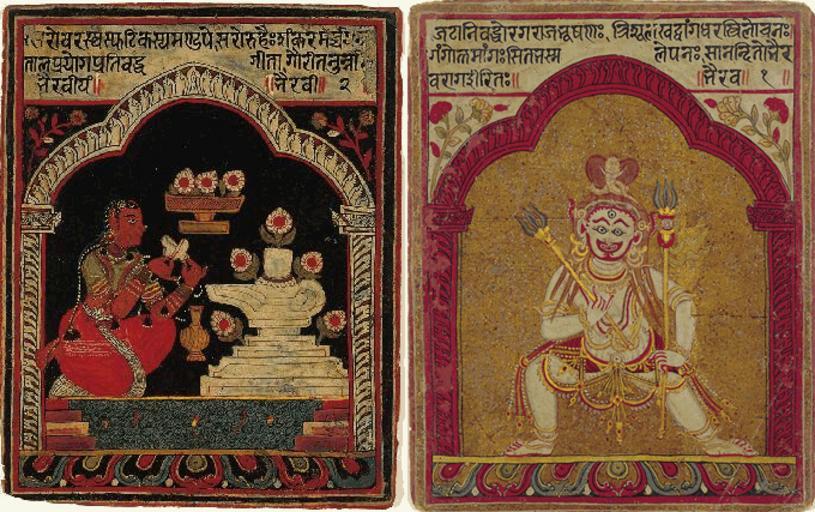 सरोवरस्थस्फटिकस्यमण्डपे,सरोरुहैःशंकर
तालप्रयोगप्रतिबद्ध गीता गौरीतनुर्न्ना
भैरवीयं॥ ॥भैरवी॥ २
जटानिबद्धोरगराजभूषणः, त्रिशूलखट्वांगधरस्त्रिलोचनः
गंगोत्तमांगःसितभस्म लेपनः सानन्दितोभैर
वरागईरितः॥ ॥भैरव॥ १ ॥